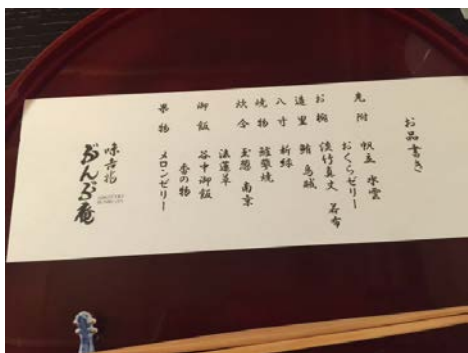 お品書き
先附 帆立 水雲
おくらゼリー
お椀 淡竹真丈 若布
造里 鮪 烏賊
八寸 新緑
焼物 鱸幣焼
炊合 玉葱 南京
法蓮草
御飯 谷中御飯
香の物
果物 メロンゼリー
味吉兆
ぶんぶ庵